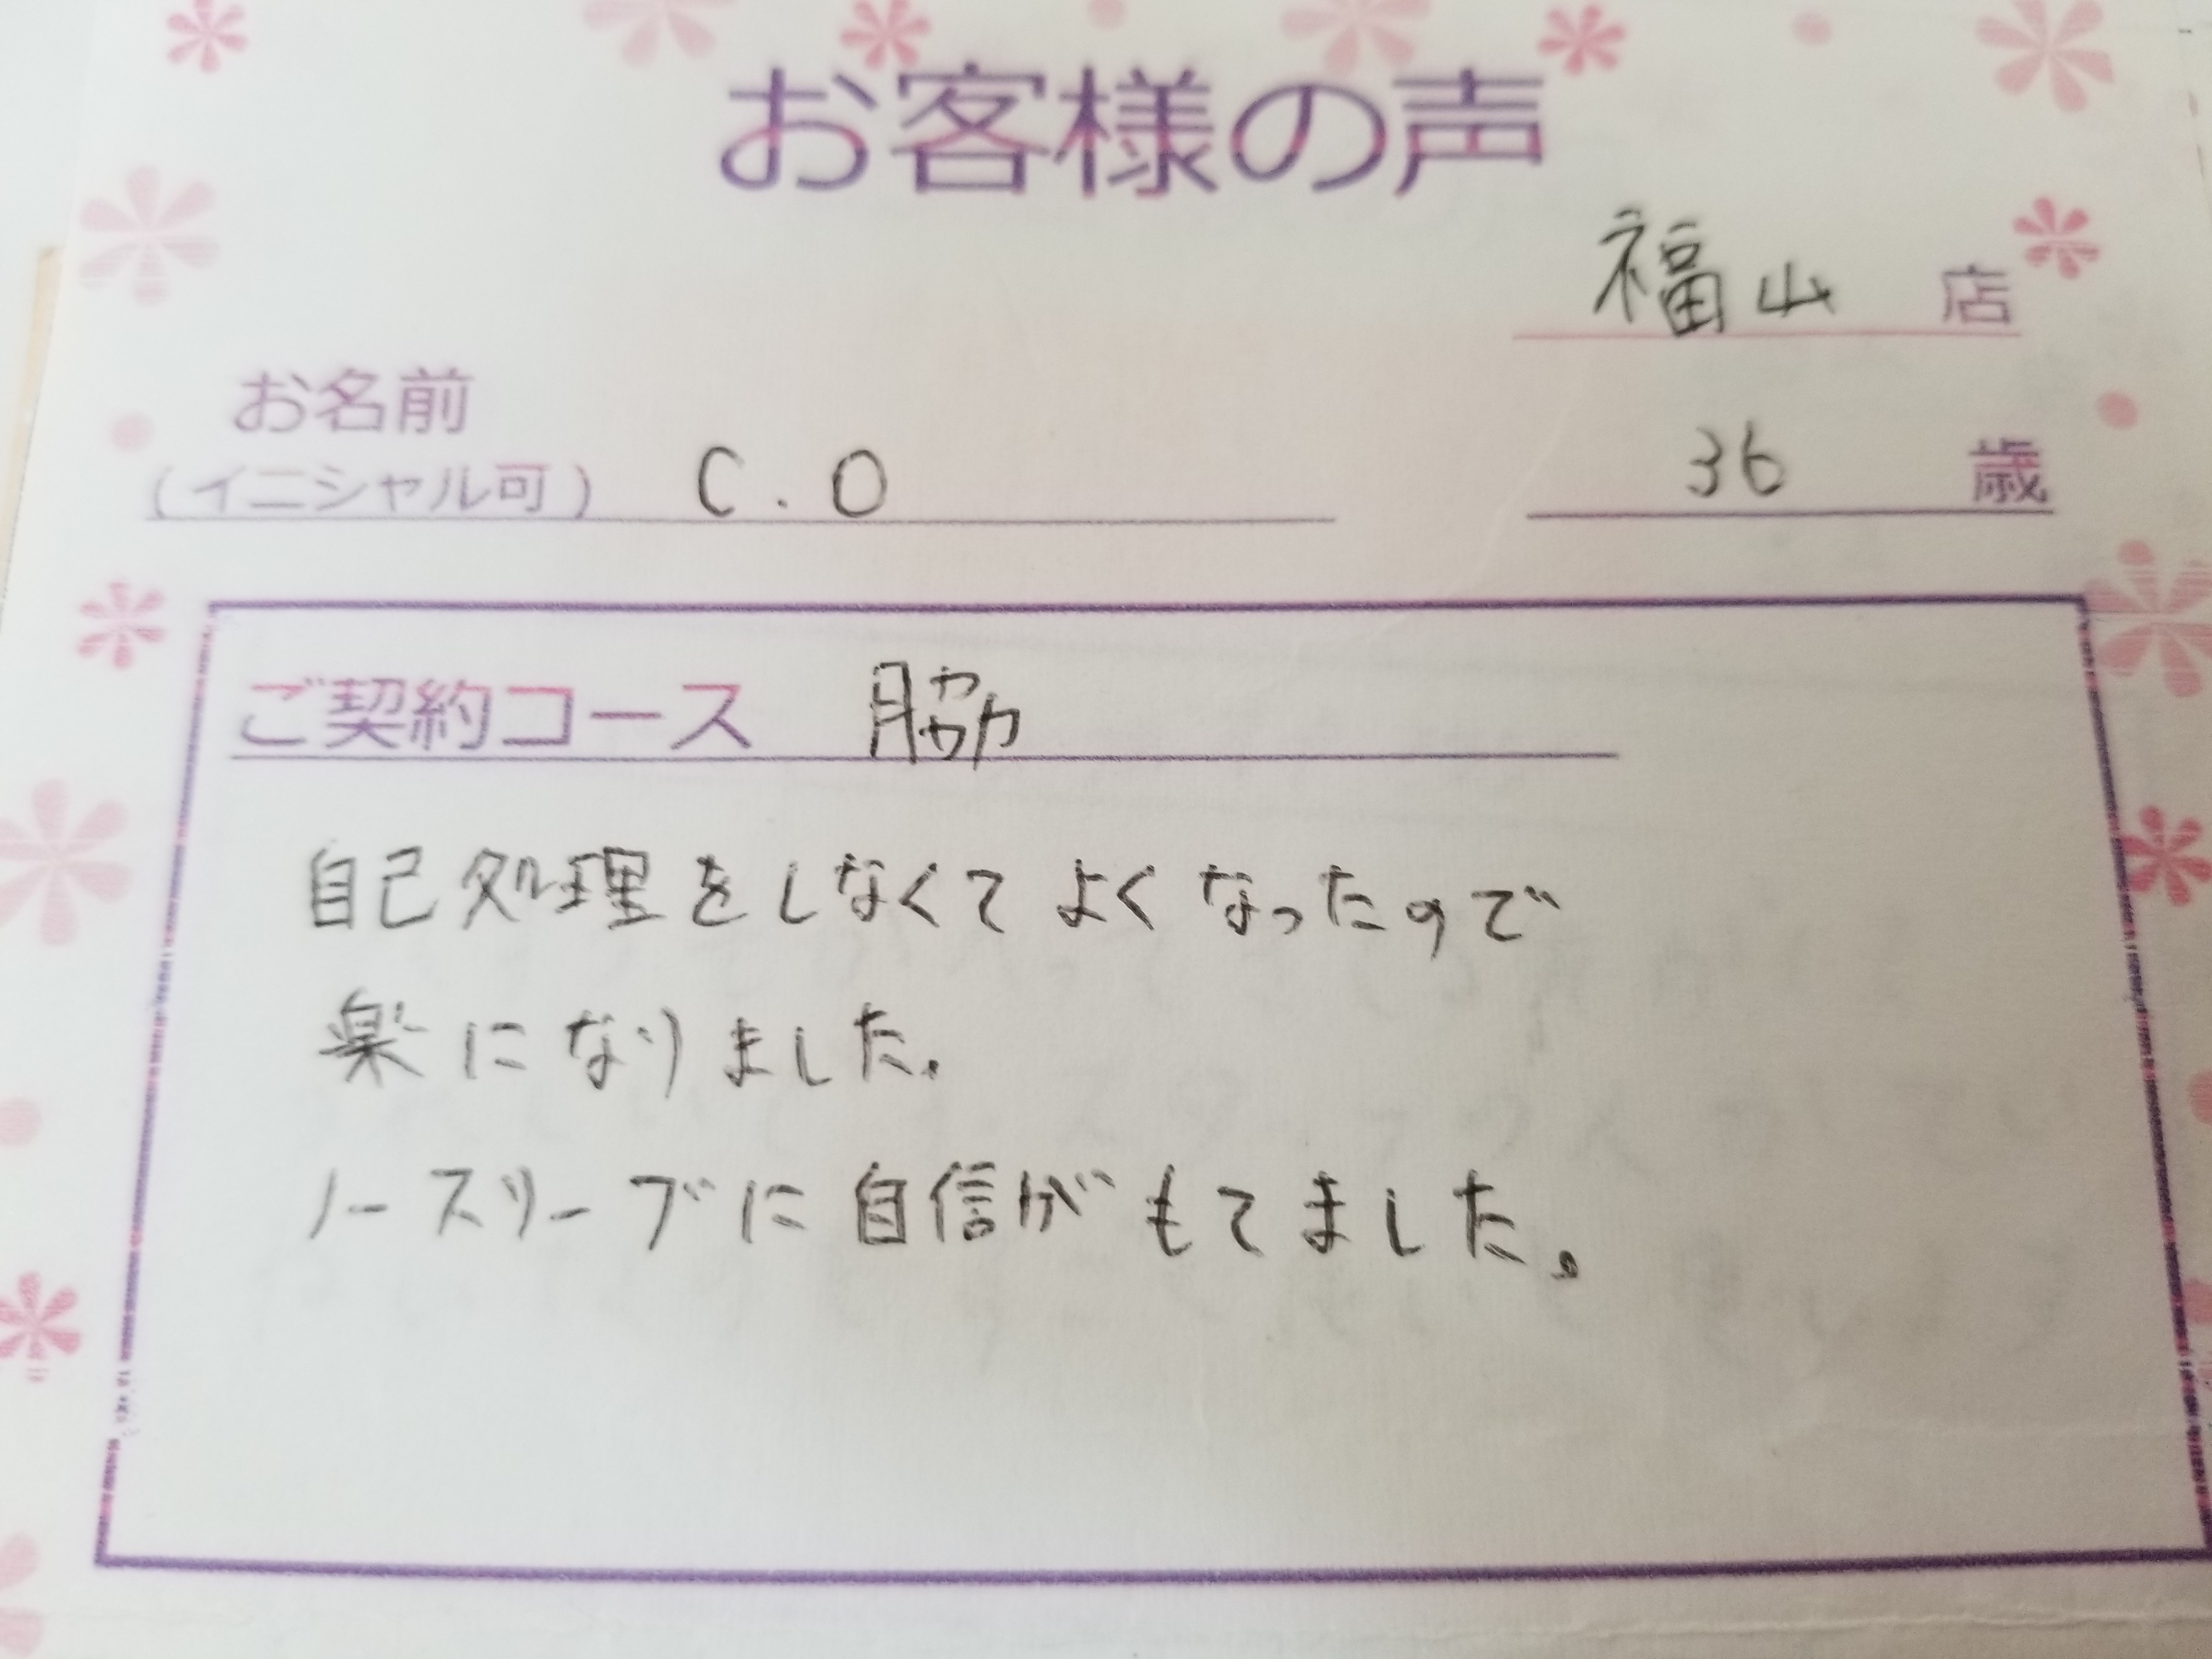 お客様の声
福山 店
お名前
(イニシャル可) C.O 36 歳
ご契約コース 脇
自己処理をしなくてよくなったので
楽になりました。
ノースリーブに自信がもてました。